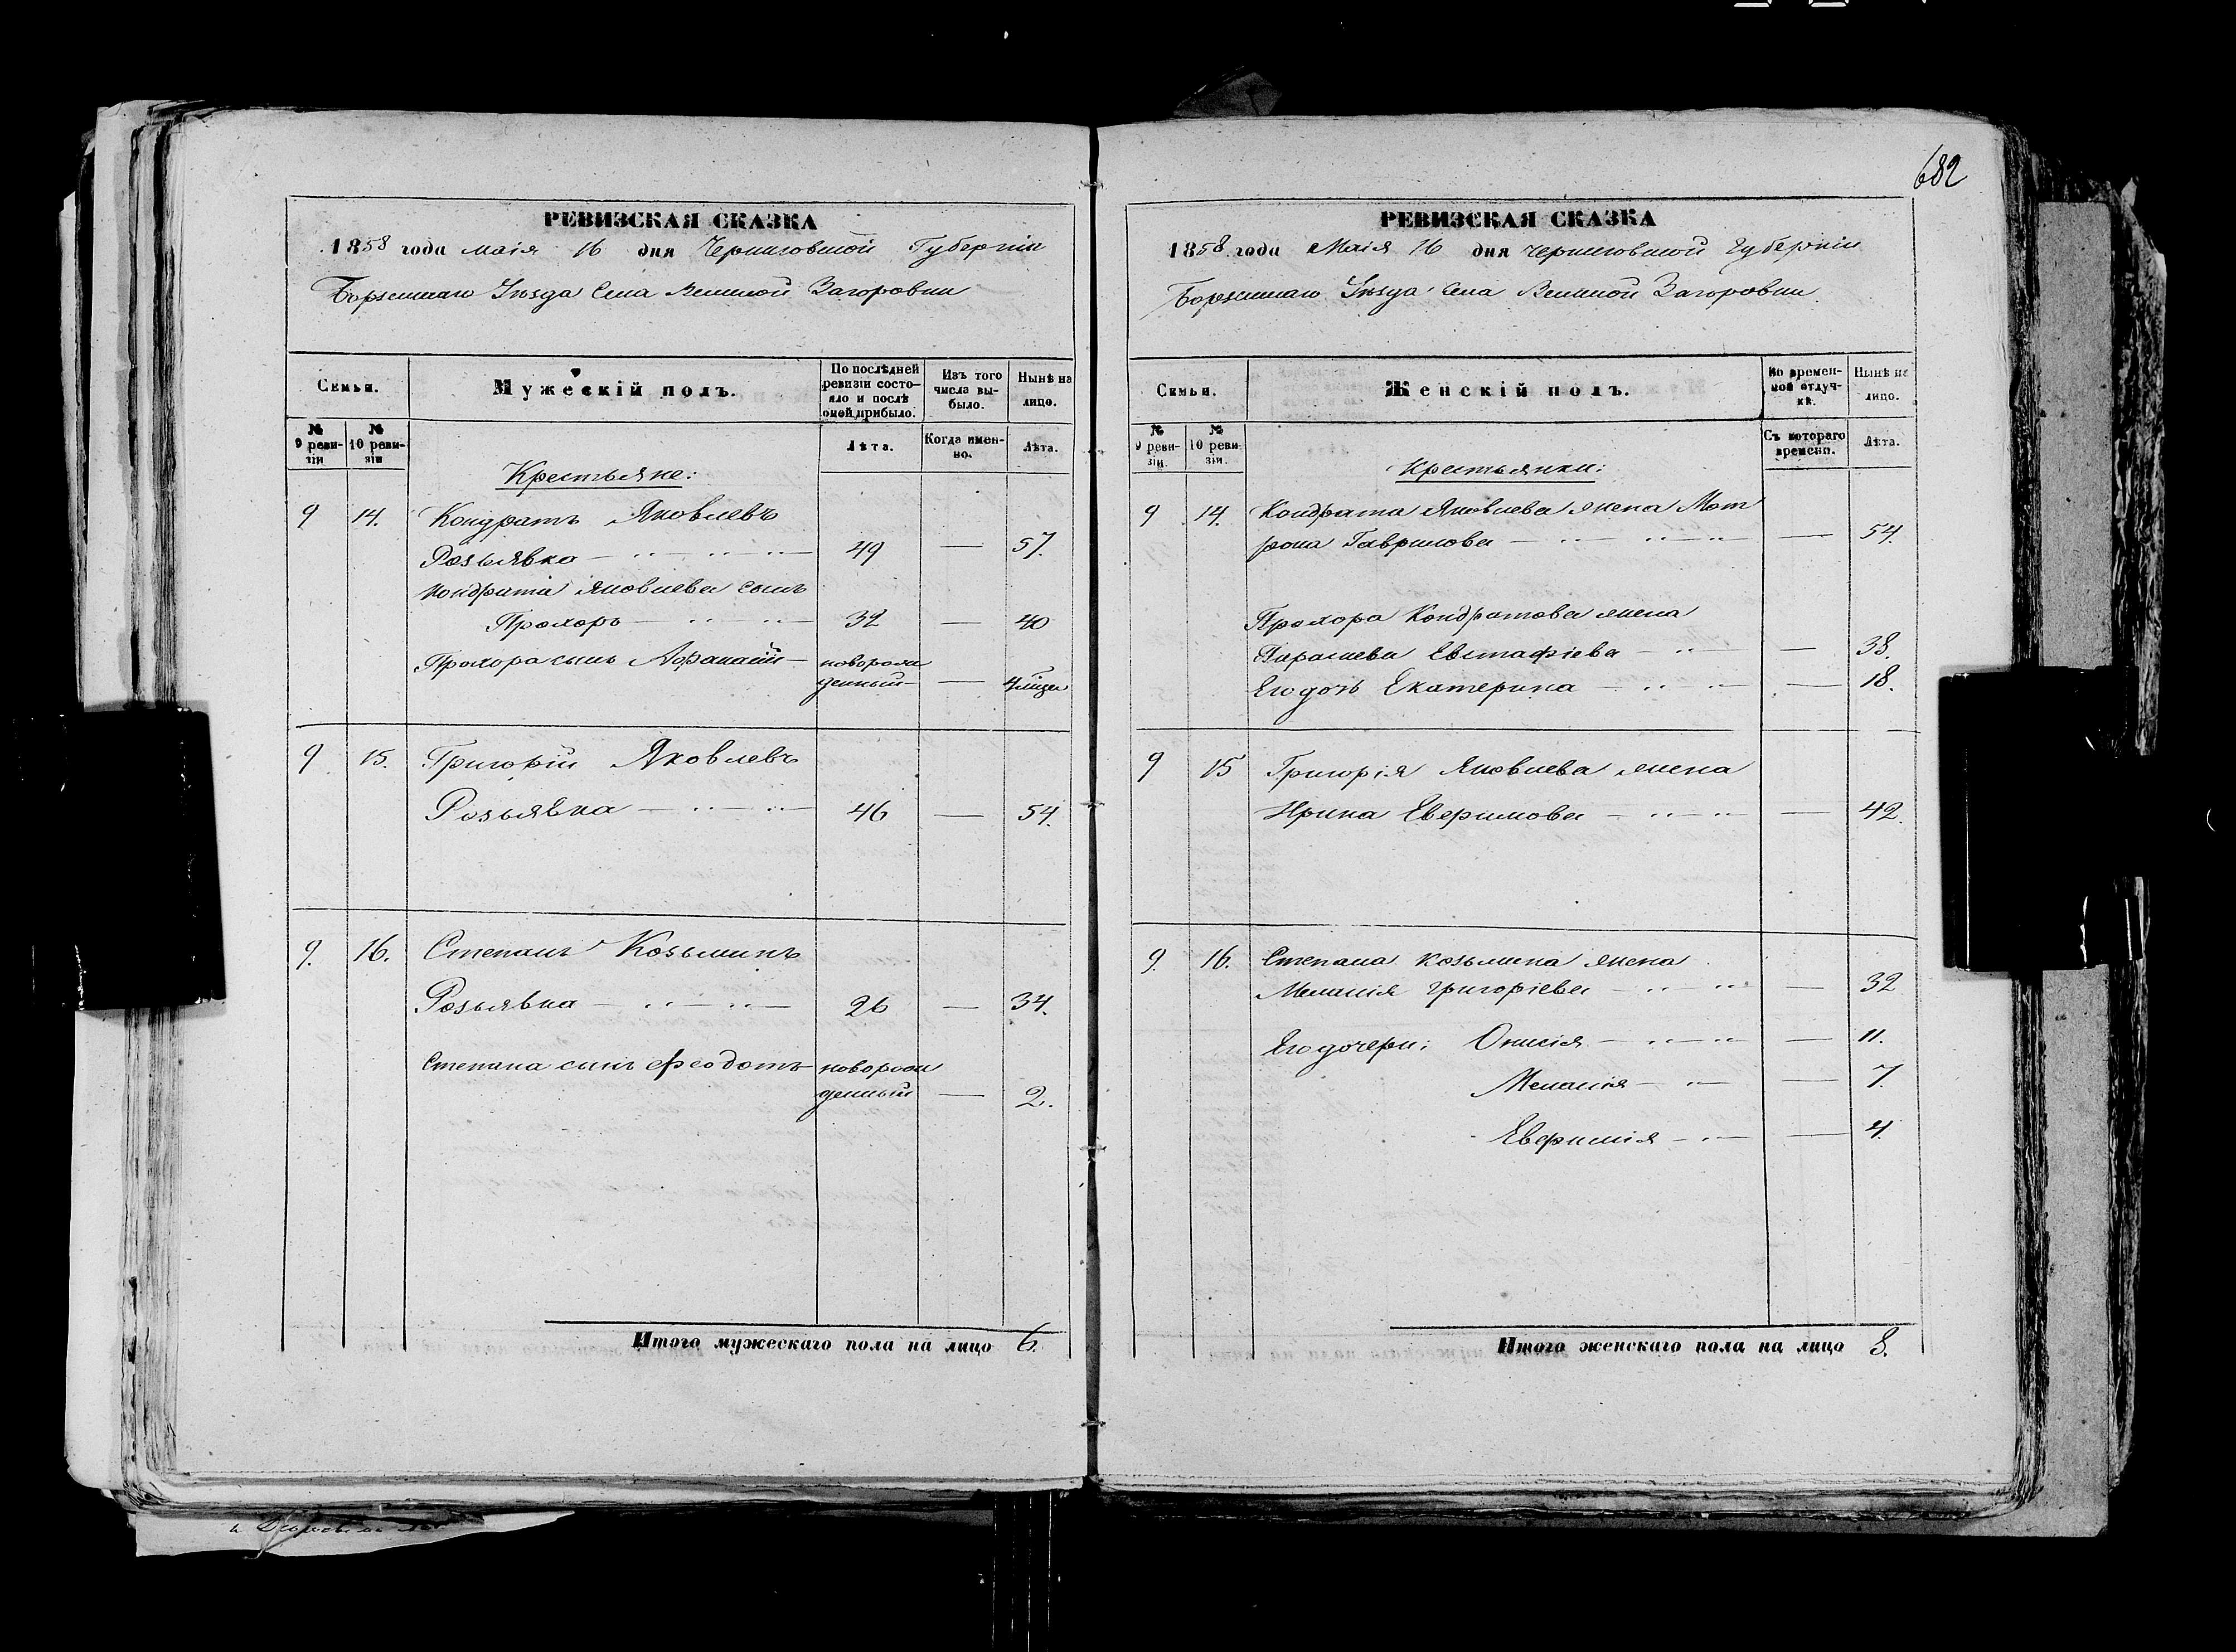 682
РЕВИЗСКАЯ СКАЗКА
1858 года маія 16 дня Черниговской Губерніи
Борзенскаго Уѣзда Села Великой Загоровки
Семьи.
Мужескій полъ.
По послѣдней ревизіи состояло и послѣ оной прибыло.
Изъ того числа выбыло.
Нынѣ на лицо.
№ 9 ревизіи
№ 10 ревизіи
Лѣта.
Когда именно.
Лѣта.
Крестьяне:
9 14. Кондратъ Яковлевъ
Розьявка 49 — 57.
Кондрата Яковлева сынъ
Прохоръ 32 — 40
Прохора сынъ Афанасій новорож
денный — 4 мѣсяц
9 15. Григорій Яковлевъ
Розьявка 46 — 54.
9. 16. Степанъ Козьминъ
Розьявка 26 — 34.
Степана сынъ Феодотъ новорож
денный — 2.
Итого мужескаго пола на лицо 6.
РЕВИЗСКАЯ СКАЗКА
1858 года Маія 16 дня Черниговской Губерніи
Борзенскаго Уѣзда Села Великой Загоровки
Семьи.
Женскій полъ.
Во временной отлучкѣ.
Нынѣ на лицо.
№ 9 ревизіи.
№ 10 ревизіи.
Съ котораго времени.
Лѣта.
Крестьянки:
9 14. Кондрата Яковлева жена Мот
рона Гаврилова — 54.
Прохора Кондратова жена
Параскева Евстафіева — 38.
Его дочь Екатерина — 18.
9 15 Григорія Яковлева жена
Ирина Евфимова — 42.
9. 16. Степана Козьмина жена
Меланія Григоріева — 32
Его дочери: Онисія — 11.
Меланія — 7.
Евфимія — 4.
Итого женскаго пола на лицо 8.